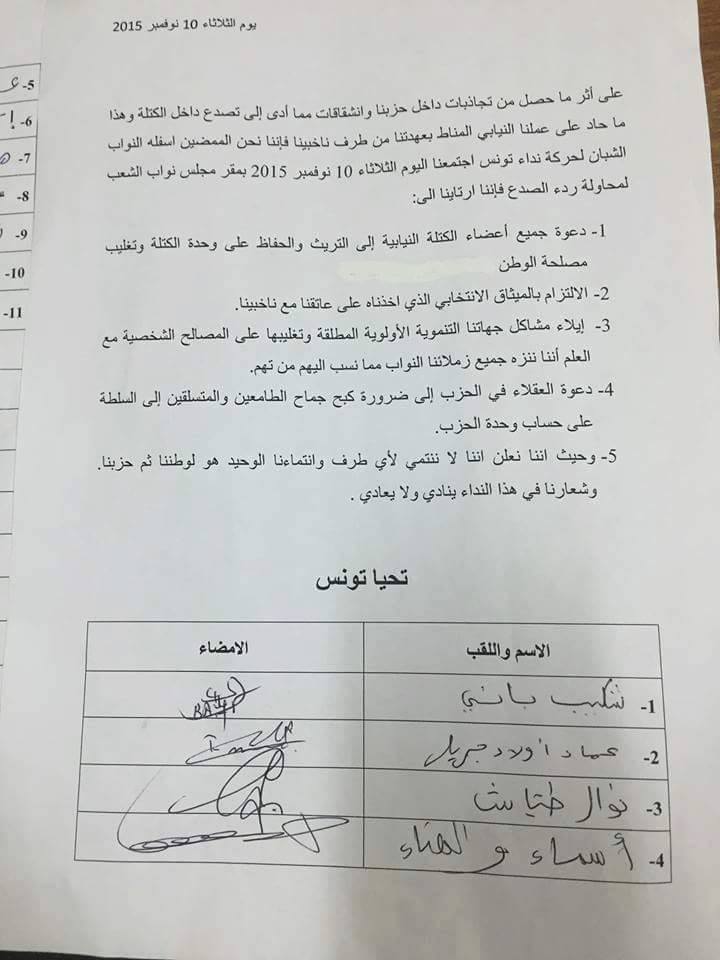 يوم الثلاثاء 10 نوفمبر 2015
على أثر ما حصل من تجاذبات داخل حزبنا وانشقاقات مما أدى إلى تصدع داخل الكتلة وهذا
ما حاد على عملنا النيابي المناط بعهدتنا من طرف ناخبينا فإننا نحن الممضين اسفله النواب
الشبان لحركة نداء تونس اجتمعنا اليوم الثلاثاء 10 نوفمبر 2015 بمقر مجلس نواب الشعب
لمحاولة ردء الصدع فإننا ارتاينا الى:
1- دعوة جميع أعضاء الكتلة النيابية إلى التريث والحفاظ على وحدة الكتلة وتغليب
مصلحة الوطن
2- الالتزام بالميثاق الانتخابي الذي اخذناه على عاتقنا مع ناخبينا.
3- إيلاء مشاكل جهاتنا التنموية الأولوية المطلقة وتغليبها على المصالح الشخصية مع
العلم أننا ننزه جميع زملائنا النواب مما نسب اليهم من تهم.
4- دعوة العقلاء في الحزب إلى ضرورة كبح جماح الطامعين والمتسلقين إلى السلطة
على حساب وحدة الحزب.
5- وحيث اننا نعلن اننا لا ننتمي لأي طرف وانتماءنا الوحيد هو لوطننا ثم حزبنا.
وشعارنا في هذا النداء ينادي ولا يعادي .
تحيا تونس
الاسم واللقب الامضاء
1- شكيب باني
2- عماد أولاد جبريل
3- نوال طياش
4- أسماء و الهناء
5-
6-
7-
8-
9-
10-
11-